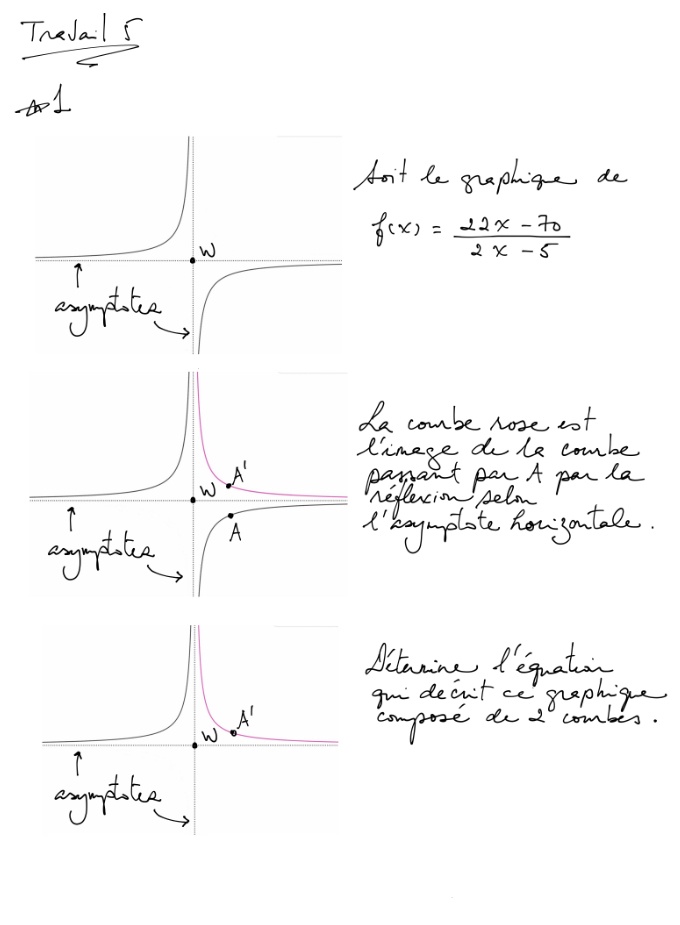 Travail 5
1
Soit le graphique de
f(x) = 22x - 70 / 2x - 5
W
asymptotes
La courbe rose est
l'image de la courbe
passant par A par la
réflexion selon
l'asymptote horizontale.
A'
W
A
asymptotes
Détermine l'équation
qui décrit ce graphique
composé de 2 courbes.
A'
W
asymptotes